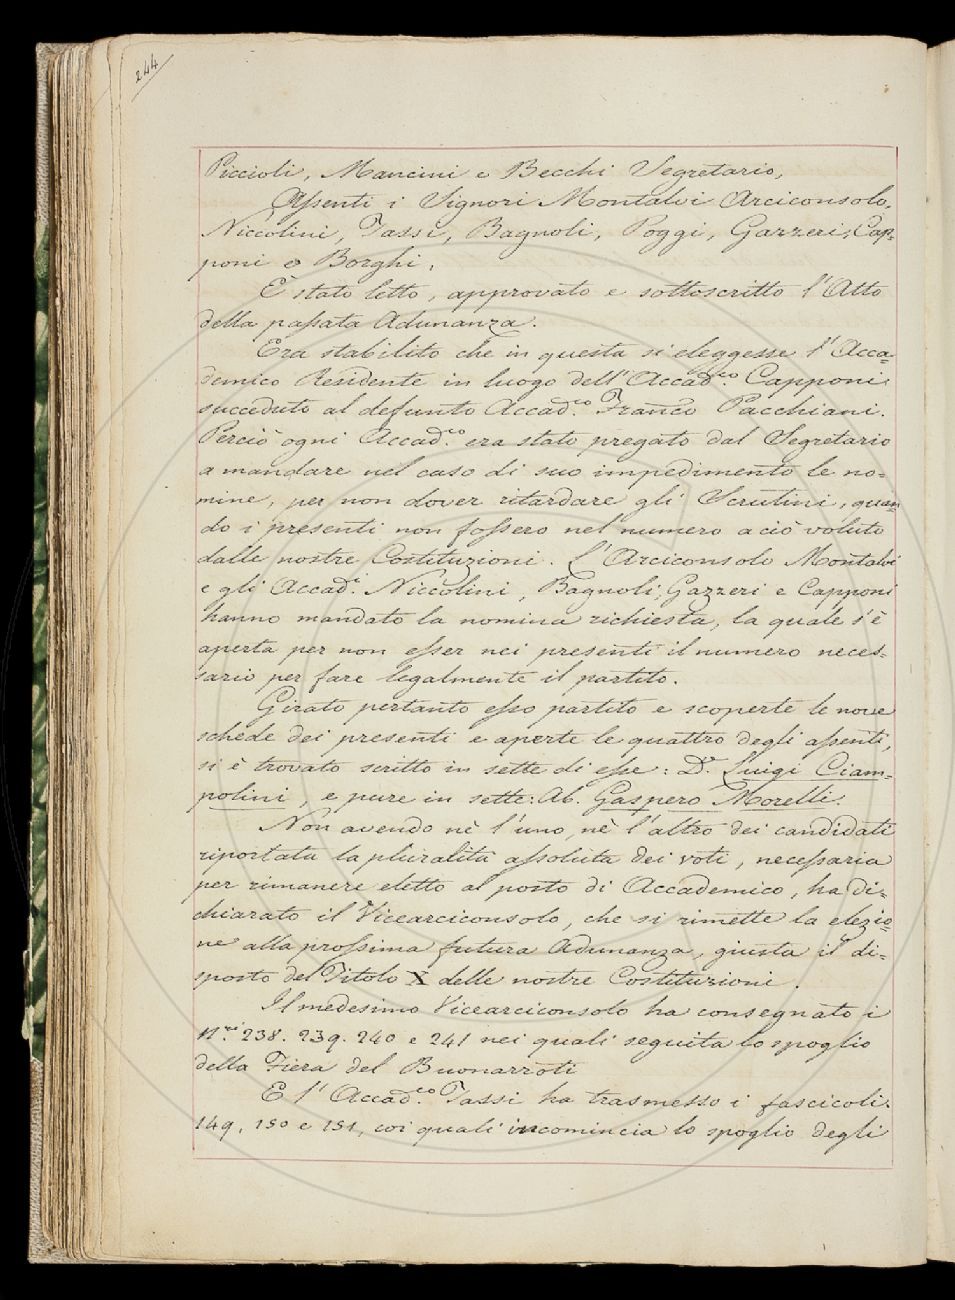 244
Piccioli, Mancini e Becchi Segretario,
Aſsenti i Signori Montalvi Arciconsolo,
Niccolini, Tassi, Bagnoli, Poggi, Gazzeri, Cap=
poni e Borghi.
È stato letto, approvato e sottoscritto l'Atto
della paſsata Adunanza.
Era stabilito che in questa si eleggesse l'Acca=
demico Residente in luogo dell'Accad.co Capponi
succeduto al defunto Accad.co Franco Pacchiani.
Perciò ogni Accad.co era stato pregato dal Segretario
a mandare nel caso di suo impedimento le no=
mine, per non dover ritardare gli Scrutini, quan=
do i presenti non foſsero nel numero a ciò voluto
dalle nostre Costituzioni. L'Arciconsolo Montalvi
e gli Accad.i Niccolini, Bagnoli, Gazzeri e Capponi
hanno mandato la nomina richiesta, la quale s'è
aperta per non eſser nei presenti il numero neces=
sario per fare legalmente il partito.
Girato pertanto eſso partito e scoperte le nove
schede dei presenti e aperte le quattro degli aſsenti,
si è trovato scritto in sette di eſse: Dr. Luigi Ciam=
polini, e pure in sette: Ab. Gaspero Morelli.
Non avendo nè l'uno, nè l'altro dei candidati
riportata la pluralità aſsoluta dei voti, neceſsaria
per rimanere eletto al posto di Accademico, ha di=
chiarato il Vicearciconsolo, che si rimette la elezio=
ne alla proſsima futura Adunanza, giusta il di=
sposto del Titolo X delle nostre Costituzioni.
Il medesimo Vicearciconsolo ha consegnato i
N.ri 238. 239. 240 e 241 nei quali seguita lo spoglio
della Fiera del Buonarroti
E l'Accad.co Tassi ha trasmesso i fascicoli.
149, 150 e 151, coi quali incomincia lo spoglio degli